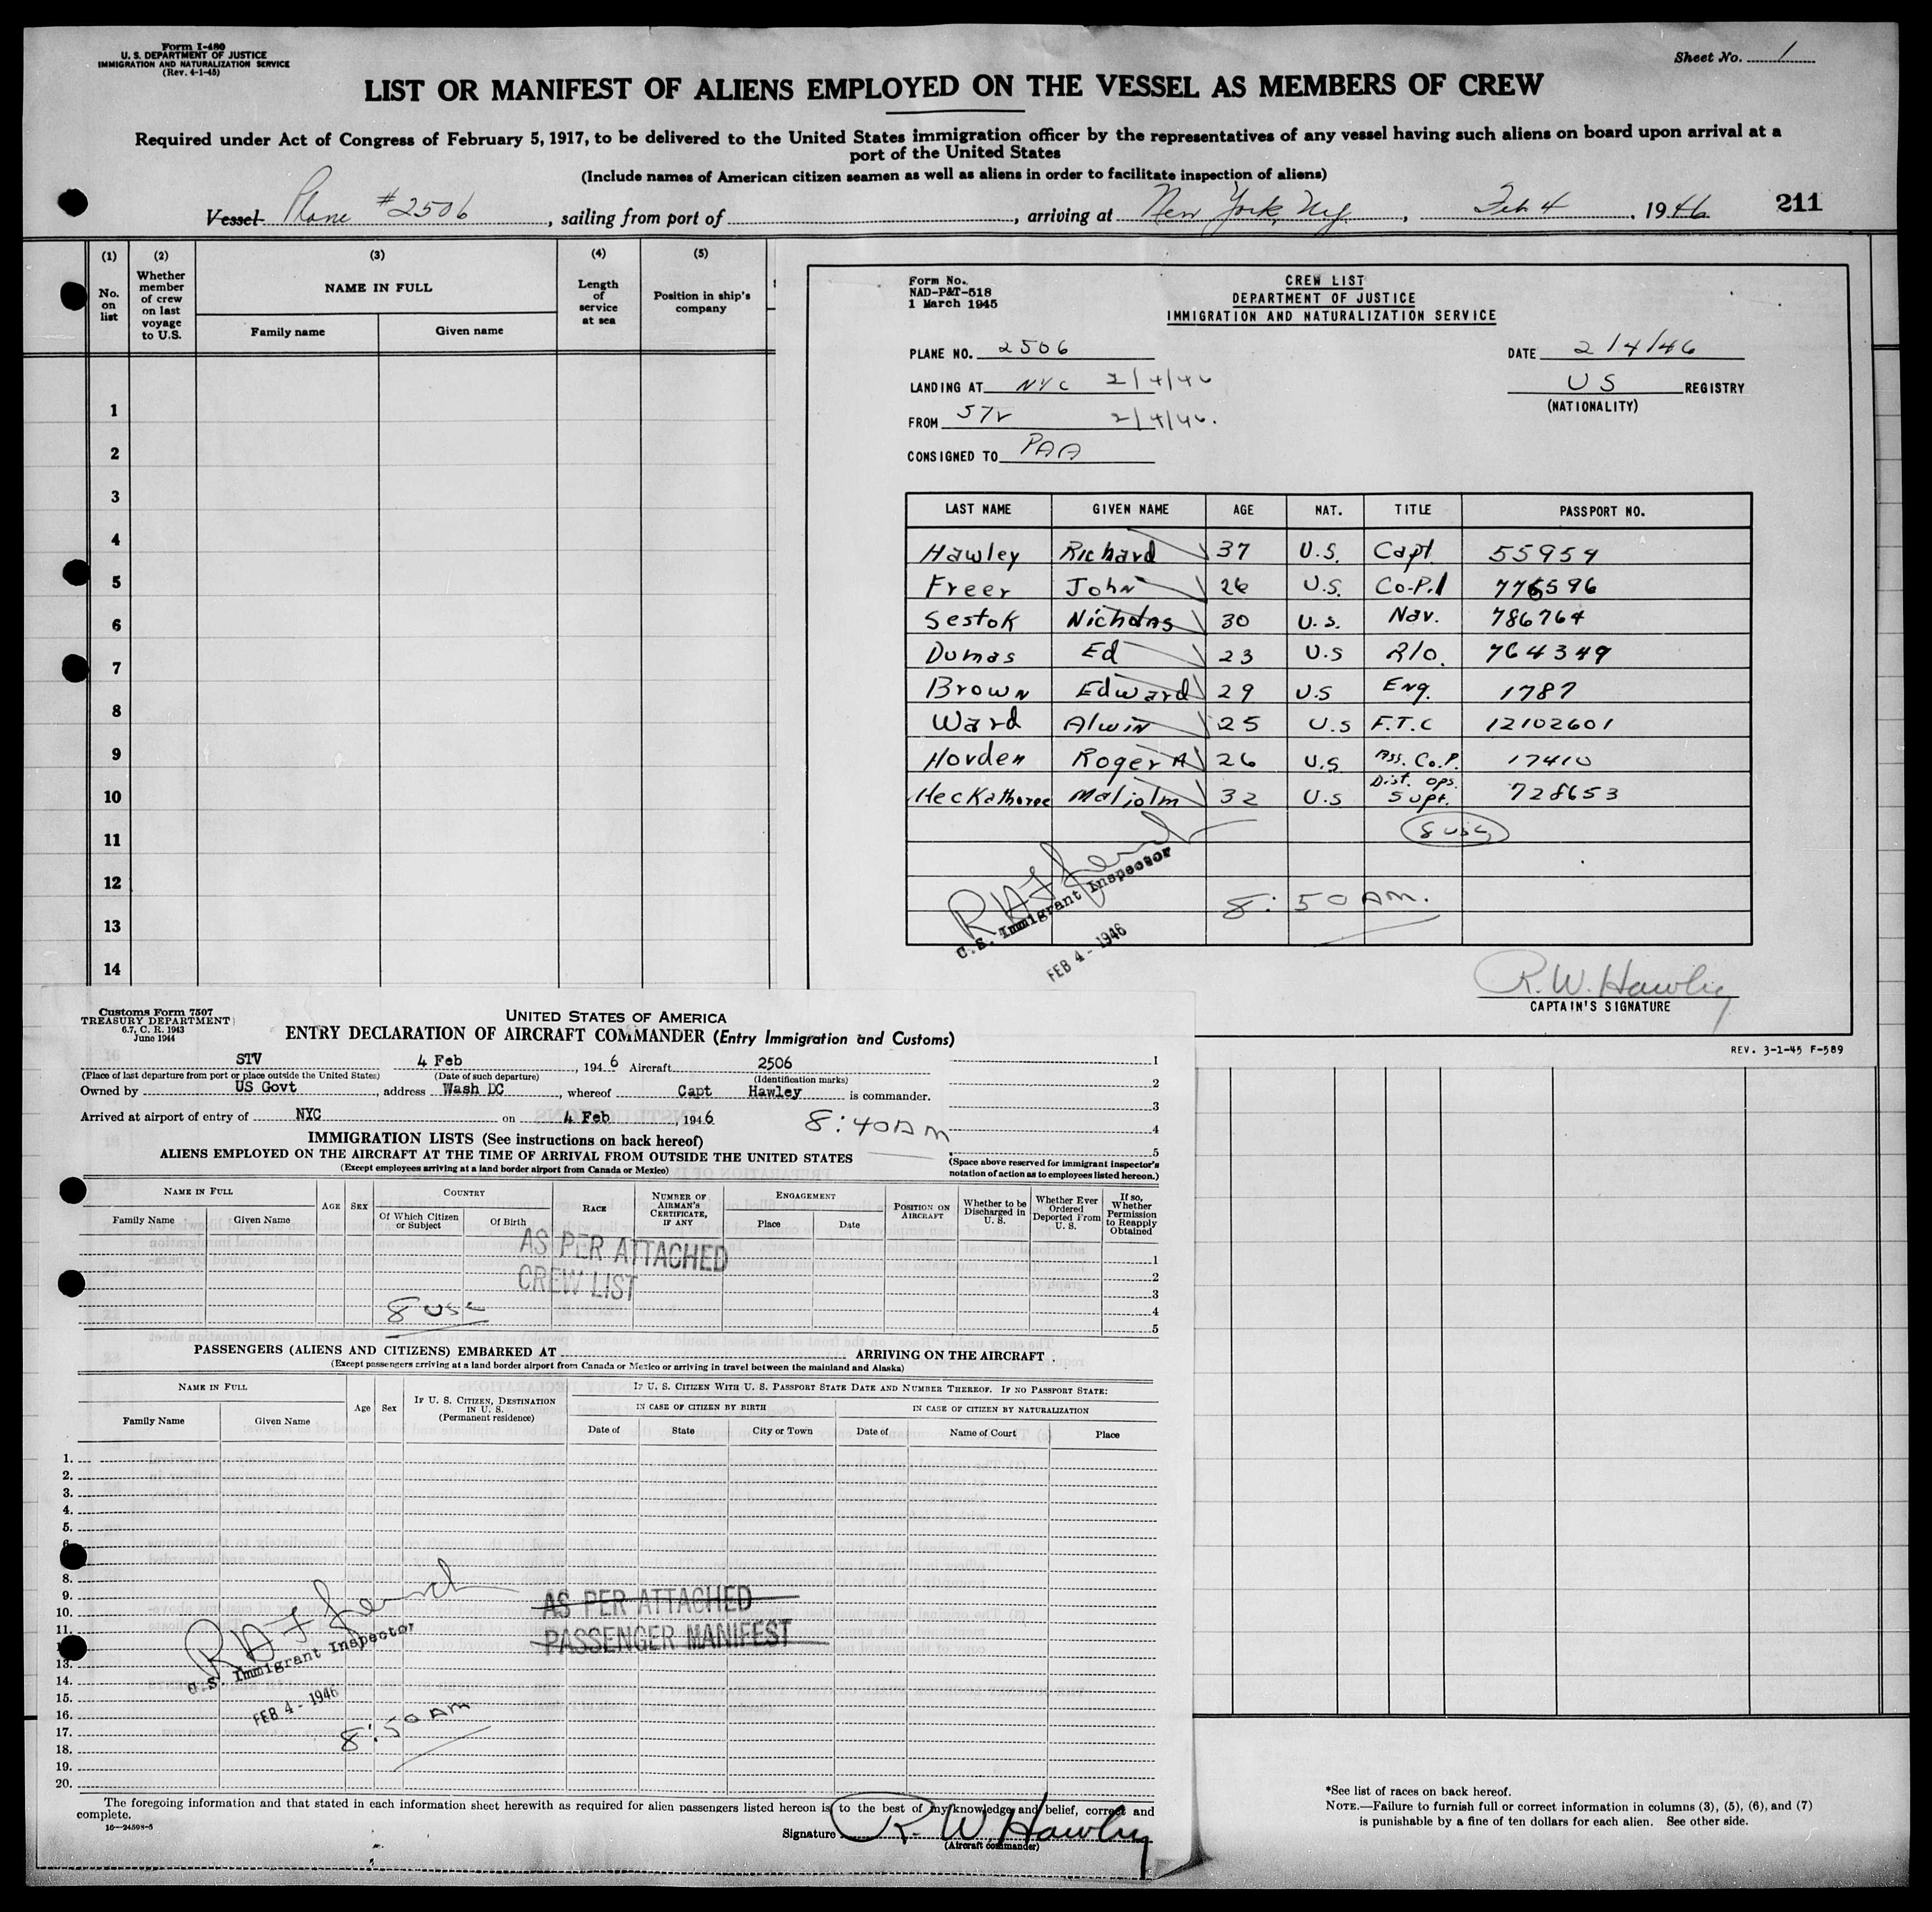 Form I-480
U. S. DEPARTMENT OF JUSTICE
IMMIGRATION AND NATURALIZATION SERVICE
(Rev. 4-1-45)
Sheet No. 1
LIST OR MANIFEST OF ALIENS EMPLOYED ON THE VESSEL AS MEMBERS OF CREW
Required under Act of Congress of February 5, 1917, to be delivered to the United States immigration officer by the representatives of any vessel having such aliens on board upon arrival at a
port of the United States
(Include names of American citizen seamen as well as aliens in order to facilitate inspection of aliens)
Vessel Plane #2506, sailing from port of, arriving at New York, NY, Feb 4, 1946 211
(1) (2) (3) (4) (5)
No. on list
Whether member of crew on last voyage to U.S.
NAME IN FULL
Family name Given name
Length of service at sea
Position in ship's company
1
2
3
4
5
6
7
8
9
10
11
12
13
14
Form No.
NAD-P&T-518
1 March 1945
CREW LIST
DEPARTMENT OF JUSTICE
IMMIGRATION AND NATURALIZATION SERVICE
PLANE NO. 2506 DATE 2/4/46
LANDING AT NYC 2/4/46 US REGISTRY
(NATIONALITY)
FROM STV 2/4/46.
CONSIGNED TO PAA
LAST NAME GIVEN NAME AGE NAT. TITLE PASSPORT NO.
Hawley Richard 37 U.S. Capt. 55959
Freer John 26 U.S. Co-P.l 776596
Sestok Nicholas 30 U.S. Nav. 786764
Dumas Ed 23 U.S R/O. 764349
Brown Edward 29 U.S Eng. 1787
Ward Alwin 25 U.S F.T.C 12102601
Hovden Roger A 26 U.S Ass. Co.P. 17410
Heckathorne Malcolm 32 U.S Dist. Ops. Supt. 728653
8 USC
U.S. Immigrant Inspector
FEB 4 - 1946
8:50 AM.
R.W. Hawley
CAPTAIN'S SIGNATURE
REV. 3-1-45 F-589
Customs Form 7507
TREASURY DEPARTMENT
6.7, C. R. 1943
June 1944
UNITED STATES OF AMERICA
ENTRY DECLARATION OF AIRCRAFT COMMANDER (Entry Immigration and Customs)
STV 4 Feb, 1946 Aircraft 2506
(Place of last departure from port or place outside the United States) (Date of such departure) (Identification marks)
Owned by US Govt, address Wash DC, whereof Capt Hawley is commander.
Arrived at airport of entry of NYC on 4 Feb, 1946 8:40AM
1
2
3
4
5
(Space above reserved for immigrant inspector's
notation of action as to employees listed hereon.)
IMMIGRATION LISTS (See instructions on back hereof)
ALIENS EMPLOYED ON THE AIRCRAFT AT THE TIME OF ARRIVAL FROM OUTSIDE THE UNITED STATES
(Except employees arriving at a land border airport from Canada or Mexico)
NAME IN FULL AGE SEX COUNTRY RACE NUMBER OF AIRMAN'S CERTIFICATE, IF ANY ENGAGEMENT POSITION ON AIRCRAFT Whether to be Discharged in U. S. Whether Ever Ordered Deported From U. S. If so, Whether Permission to Reapply Obtained
Family Name Given Name Of Which Citizen or Subject Of Birth Place Date
AS PER ATTACHED
CREW LIST
8 USC
1
2
3
4
5
PASSENGERS (ALIENS AND CITIZENS) EMBARKED AT ARRIVING ON THE AIRCRAFT
(Except passengers arriving at a land border airport from Canada or Mexico or arriving in travel between the mainland and Alaska)
NAME IN FULL Age Sex IF U. S. CITIZEN, DESTINATION IN U. S. (Permanent residence) IF U. S. CITIZEN WITH U. S. PASSPORT STATE DATE AND NUMBER THEREOF. IF NO PASSPORT STATE:
IN CASE OF CITIZEN BY BIRTH IN CASE OF CITIZEN BY NATURALIZATION
Family Name Given Name Date of State City or Town Date of Name of Court Place
1.
2.
3.
4.
5.
8.
9.
10.
11.
13.
14.
15.
16.
17.
18.
19.
20.
AS PER ATTACHED
PASSENGER MANIFEST
U.S. Immigrant Inspector
FEB 4 - 1946
8:50 AM
The foregoing information and that stated in each information sheet herewith as required for alien passengers listed hereon is, to the best of my knowledge and belief, correct and
complete.
16—24598-5
Signature R. W. Hawley
(Aircraft commander)
*See list of races on back hereof.
NOTE.—Failure to furnish full or correct information in columns (3), (5), (6), and (7)
is punishable by a fine of ten dollars for each alien. See other side.